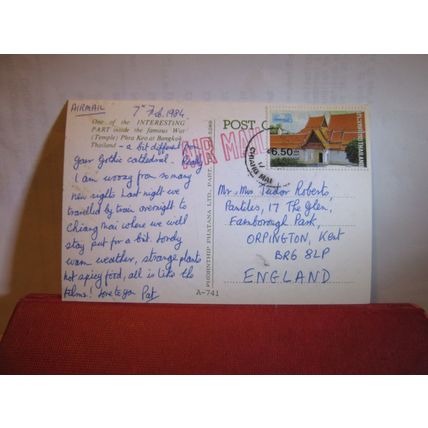 AIRMAIL
7th Feb. 1984
One of the INTERESTING
PART inside the famous Wat
(Temple) Phra Keo at Bangkok
Thailand - a bit different from
your Gothic cathedral. Really
I am woozy from so many
new sights. Last night we
travelled by train overnight to
Chiang Mai where we will
stay put for a bit. Lovely
warm weather, strange plants
hot spicy food, all is like the
films! Love to you Pat
PHORNTHIP PHATANA LTD., PART.
A-741
POST
AIR MAIL
6.50
Mr. Mrs. Tudor Roberts,
Pantiles, 17 The Glen,
Farnborough Park,
ORPINGTON, Kent
BR6 8LP
ENGLAND